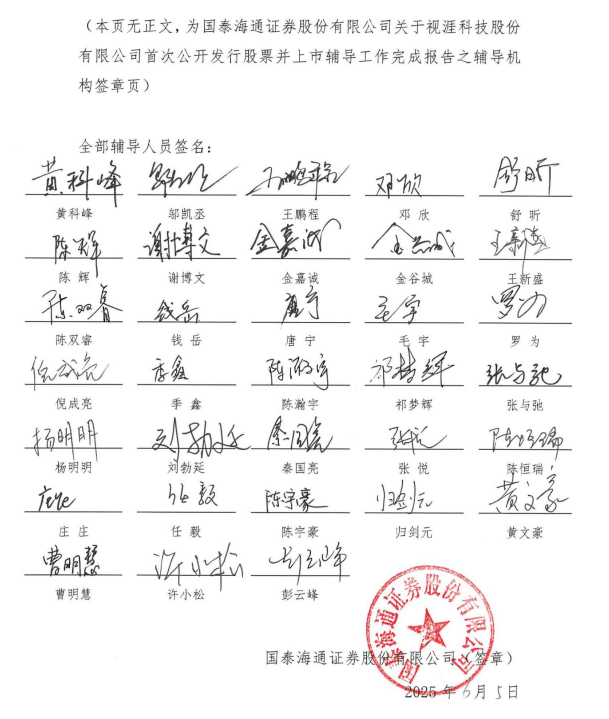 （本页无正文，为国泰海通证券股份有限公司关于视涯科技股份
有限公司首次公开发行股票并上市辅导工作完成报告之辅导机
构签章页）
全部辅导人员签名：
黄科峰 邹凯丞 王鹏程 邓欣 舒昕
黄科峰 邬凯丞 王鹏程 邓 欣 舒 昕
陈辉 谢博文 金嘉诚 金谷城 王新盛
陈 辉 谢博文 金嘉诚 金谷城 王新盛
陈双睿 钱岳 唐宁 毛宇 罗为
陈双睿 钱 岳 唐 宁 毛 宇 罗 为
倪成亮 季鑫 陈瀚宇 祁梦辉 张与弛
倪成亮 季 鑫 陈瀚宇 祁梦辉 张与弛
杨明明 刘勃延 秦国亮 张悦 陈恒瑞
杨明明 刘勃延 秦国亮 张 悦 陈恒瑞
庄庄 任毅 陈宇豪 归剑元 黄文豪
庄 庄 任 毅 陈宇豪 归剑元 黄文豪
曹明慧 许小松 彭云峰
曹明慧 许小松 彭云峰
国泰海通证券股份有限公司
国泰海通证券股份有限公司（签章）
2025 年 6 月 5 日